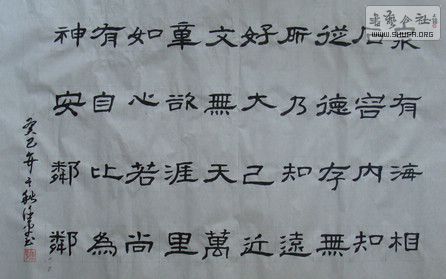 從所好文章如有神
有容德乃大無欲心自安
海内存知己天涯若比鄰
相知無遠近萬里尚為鄰
癸巳年
書藝公社
WWW.SHUFA.ORG